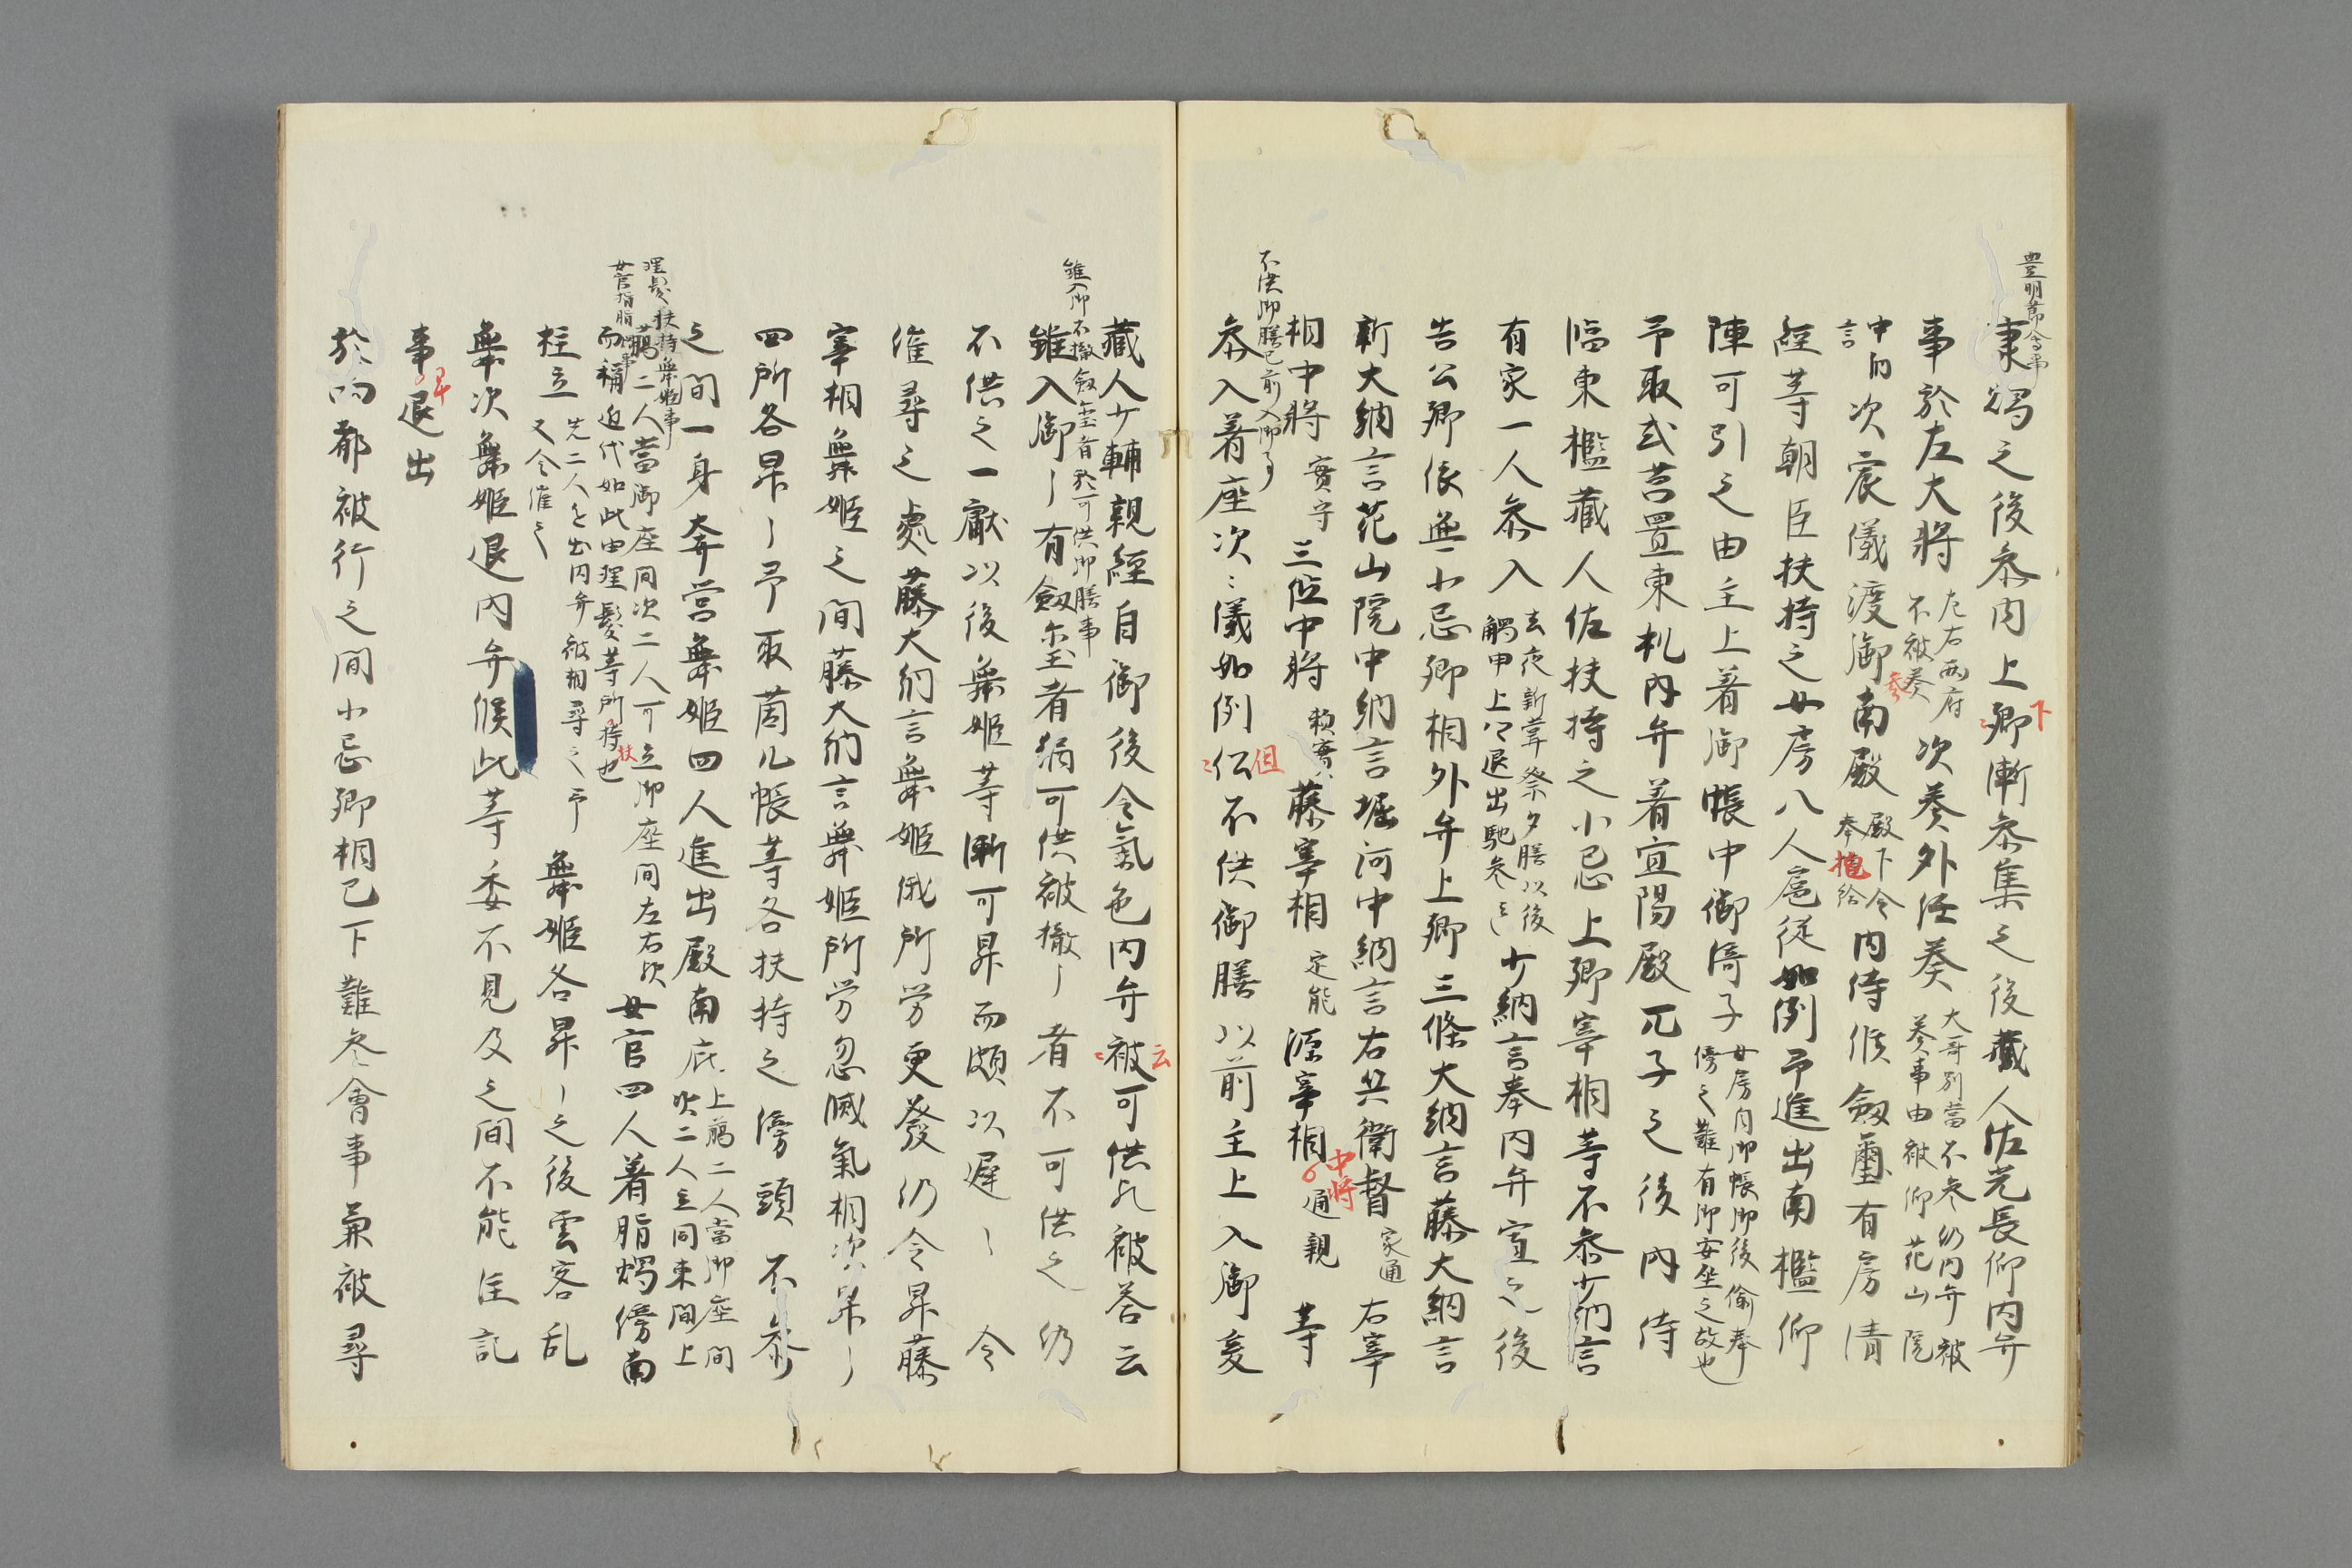 豊明節会事
秉燭之後参内上卿漸参集之後蔵人佐光長仰内弁
下
事於左大将
左右両府
不被奏
次奏外任奏
大哥別當不参仍内弁被
奏事由被仰花山院
中納
言
次宸儀渡御南殿
参
殿下令
奉
給
内侍候劔璽有房清
経等朝臣扶持之女房八人扈従如例予進出南檻仰
陣可引之由主上着御帳中御倚子
女房内御帳御後偸奉
傍之難有御安坐之故也
予取式莒置東机内弁着宜陽殿兀子之後内侍
臨東檻蔵人佐扶持之小忌上卿宰相等不参少納言
有家一人参入
去夜新嘗祭夕膳以後
觸申上卿退出馳参云々
少納言奉内弁宣之後
告公卿依無小忌卿相外弁上卿三條大納言藤大納言
新大納言花山院中納言堀河中納言右兵衛督
家通
右宰
相中将
實守
三位中将
頼實
藤宰相
定能
源宰相
中将
通親
等
不供御膳已前入御事
参入着座次々儀如例仍不供御膳以前主上入御爰
但
蔵人少輔親経自御後令氣色内弁被可供哉被答云
云
雖入御不撤劔璽者於可供御膳事
雖入御〻有劔璽者猶可供被撤〻者不可供之仍
不供之一献以後舞姫等漸可昇而頗以遅〻令
催尋之處藤大納言舞姫俄所労更發仍令昇藤
宰相舞姫之間藤大納言舞姫所労忽滅氣相次昇〻
四所各昇〻予取茵几帳等各扶持之傍頭不参
之間一身奔営舞姫四人進出殿南庇
上臈二人當御座間
次二人立同東間上
理髪扶持舞姫事
女官指脂燭事
臈二人當御座間次二人可立御座間左右次
而稱近代如此由理髪等所持也
扶
女官四人着脂燭傍南
柱立
先二人参出内弁被相尋之予
又令催之
舞姫各昇〻之後雲客乱
舞次舞姫退内弁候此等委不見及之間不能注記
事退出
早
於内都被行之間小忌卿相已下難参會事兼被尋